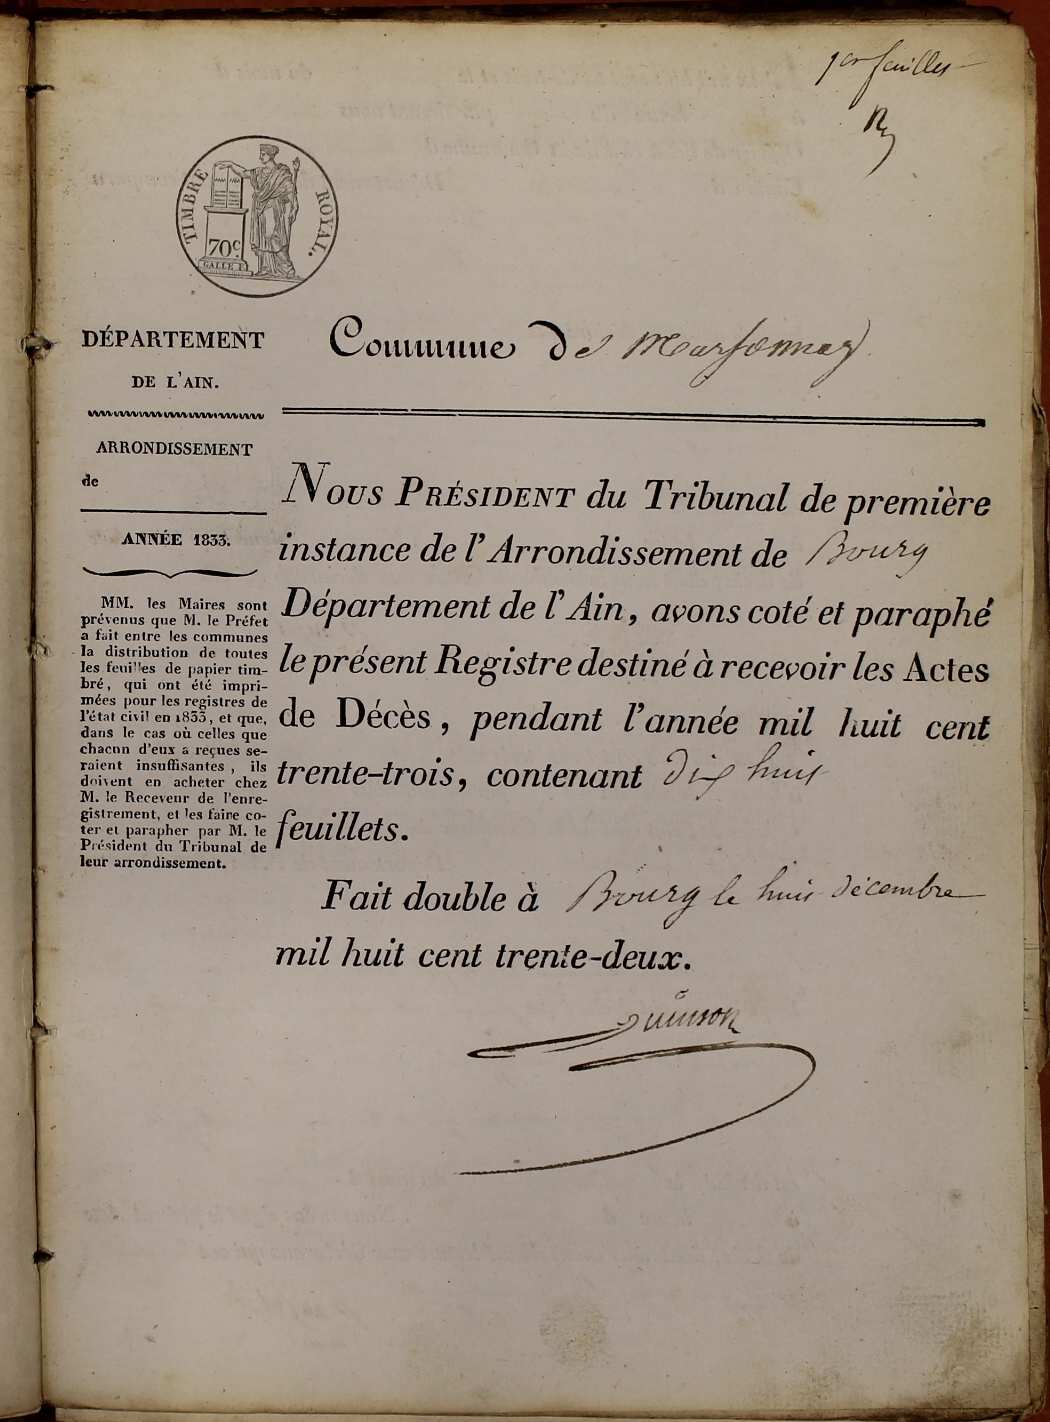 1er feuillet
TIMBRE ROYAL.
70c
GALLE F.
DÉPARTEMENT
DE L'AIN.
ARRONDISSEMENT
de
ANNÉE 1833.
MM. les Maires sont
prévenus que M. le Préfet
a fait entre les communes
la distribution de toutes
les feuilles de papier tim-
bré, qui ont été impri-
mées pour les registres de
l'état civil en 1833, et que,
dans le cas où celles que
chacun d'eux a reçues se-
raient insuffisantes, ils
doivent en acheter chez
M. le Receveur de l'enre-
gistrement, et les faire co-
ter et parapher par M. le
Président du Tribunal de
leur arrondissement.
Commune De Marsonnay
NOUS PRÉSIDENT du Tribunal de première
instance de l'Arrondissement de Bourg
Département de l'Ain, avons coté et paraphé
le présent Registre destiné à recevoir les Actes
de Décès, pendant l'année mil huit cent
trente-trois, contenant dix huit
feuillets.
Fait double à Bourg le huit décembre
mil huit cent trente-deux.